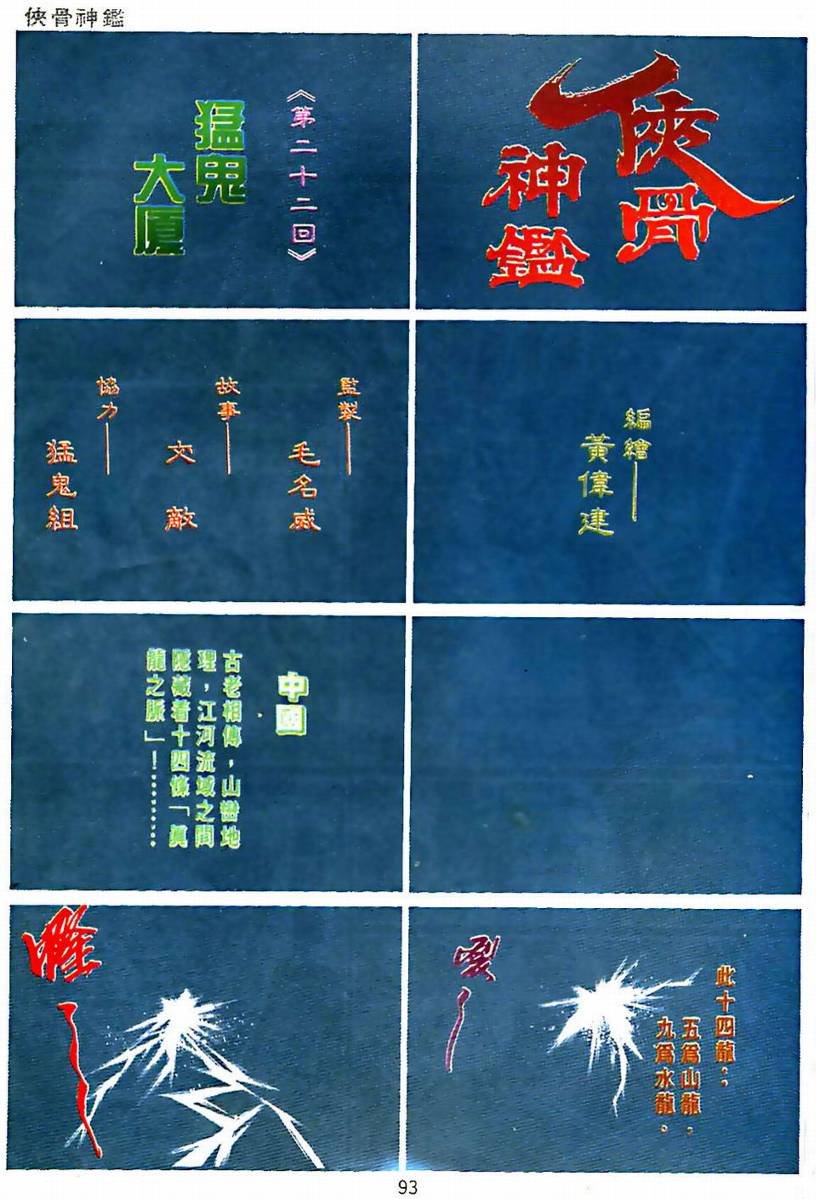 俠骨神鑑
俠骨
神鑑
《第二十二回》
猛鬼
大厦
編繪
黃偉建
監製
毛名威
故事
文敵
協力
猛鬼組
中國
古老相傳，山巒地
理，江河流域之間
隱藏着十四條「眞
龍之脈」！………
此十四龍：
五爲山龍，
九爲水龍。
93